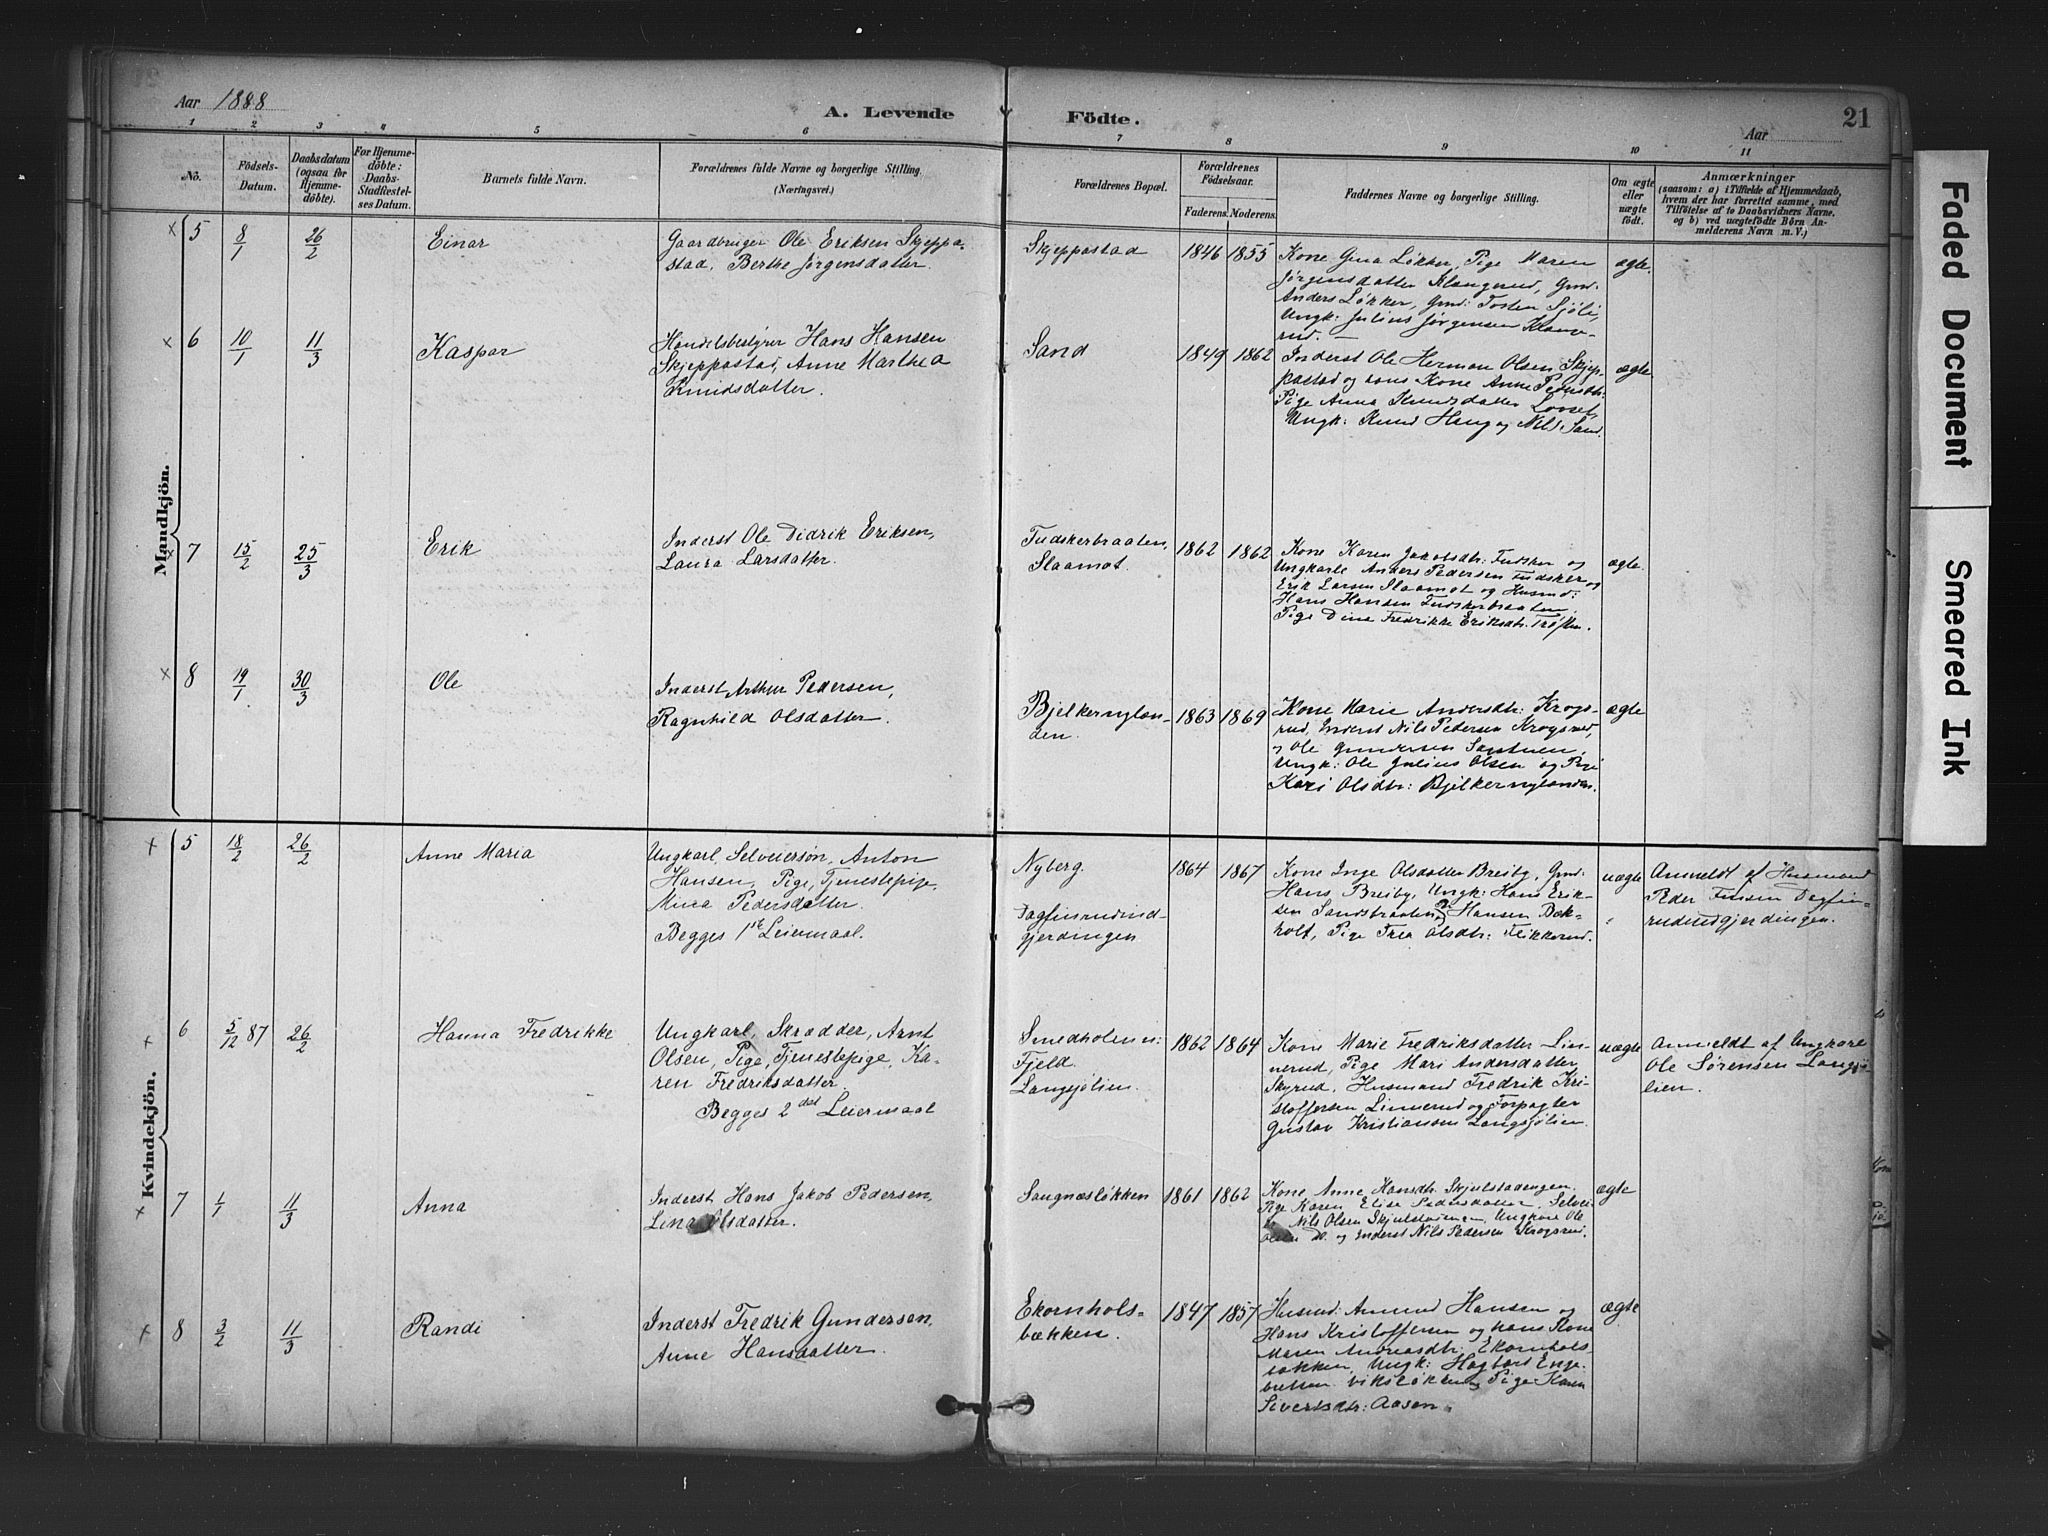 Aar 1888
A. Levende Födte.
Aar
21
1 2 3 4 5 6 7 8 9 10 11
No.
Födsels-Datum.
Daabsdatum (ogsaa for Hjemme-döbte).
For Hjemme-döbte: Daabs-Stadfæstel-ses Datum.
Barnets fulde Navn.
Forældrenes fulde Navne og borgerlige Stilling.
(Næringsvei.)
Forældrenes Bopæl.
Forældrenes Födselsaar.
Faderens. Moderens.
Faddernes Navne og borgerlige Stilling.
Om ægte eller uægte födt.
Anmærkninger
(saasom: a) i Tilfælde af Hjemmedaab,
hvem der har forrettet samme, med
Tilföielse af to Daabsvidners Navne,
og b) ved uægtefödte Börn An-
melderens Navn m. V.)
Mandkjön.
× 5 8/1 26/2 Einar
Gaardbruger Ole Eriksen Skjeppe-
stad, Berthe Jørgensdatter.
Skjeppestad 1846 1855
Kone Gina Løkker, Pige Maren
Jørgensdatter Klangerud, Gmd:
Anders Løkker, Gmd: Tosten Sjöli,
Ungk: Julius Jørgensen Klange-
rud.
ægte.
× 6 10/1 11/3 Kaspar
Handelsbestyrer Hans Hansen
Skjeppestad, Anne Marthea
Knudsdatter.
Sand 1849 1862
Inderst Ole Herman Olsen Skjep-
pestad og hans Kone Anne Pedersdtr:
Pige Anna Knudsdatter
Ungk: Knud Haug og Nils Sand.
ægte
× 7 15/2 25/3 Erik
Inderst Ole Didrik Eriksen,
Laura Larsdatter.
Fudskerbraaten, Slaamot. 1862 1862
Kone Karen Jakobsdtr: Fudsker og
Ungkarle Anders Pedersen Fudsker og
Erik Larsen Slaamot og Husmd:
Hans Hansen Fudskerbraaten,
Pige Dina Fredrikke Eriksdtr:
ægte.
× 8 19/1 30/3 Ole
Inderst Arthur Pedersen,
Ragnhild Olsdatter.
Bjelkernylan-
den. 1863 1869
Kone Marie Andersdtr: Krogs-
rud, Inderst Nils Pedersen Krogsrud,
og Ole Gundersen
Ungk: Ole Julius Olsen og Pige
Kari Olsdtr: Bjelkernylanden.
ægte
Kvindekjön.
+ 5 18/2 26/2 Anne Maria
Ungkarl, Selveiersøn, Anton
Hansen, Pige, Tjenestepige,
Mina Pedersdatter.
Begges 1ste Leiermaal.
Nyberg.
Dagfinrudind-
gjerdingen 1864 1867
Kone Inge Olsdatter Breiby, Gmd:
Hans Breiby, Ungk: Hans Erik-
sen Sandsbraaten Hansen Bæk-
holt, Pige Olsdtr: Flikkerud.
uægte
Anmeldt af Husmand
Peder Dagfin-
rudindgjerdingen.
× 6 5/12 87 26/2 Hanna Fredrikke
Ungkarl, Skrædder, Arnt
Olsen, Pige, Tjenestepige, Ka-
ren Fredriksdatter.
Begges 2det Leiermaal
Smedholen i
Fjeld.
Langsjölien. 1862 1864
Kone Marie Fredriksdatter Lin-
nerud, Pige Mari Andersdatter
Skyrud, Husmand Fredrik Kri-
stoffersen Linnerud og Forpagter
Gustav Kristiansen Langsjölien.
uægte
Anmeldt af Ungkarl
Ole Sørensen Langsjö-
lien.
× 7 1/1 11/3 Anna
Inderst Hans Jakob Pedersen,
Lina Olsdatter.
Sangnæsløkken 1861 1862
Kone Anne Hansdtr: Skjulstadengen,
Pige Karen Elise Pedersdatter, Selvei-
Nils Olsen Ungkarl Ole
og Inderst Nils Pedersen Krogsrud.
ægte
+ 8 3/2 11/3 Randi
Inderst Fredrik Gundersen,
Anne Hansdatter.
Ekornhols-
bækken. 1847 1857
Husmd: Amund Hansen og
Hans Kristoffersen og hans Kone
Maren Andreasdtr: Ekornhols-
bækken, Ungk: Hagbart Enge-
bretsen Vikslökken, Pige Karen
Sivertsdtr: Aasen.
ægte
Faded Document
Smeared Ink